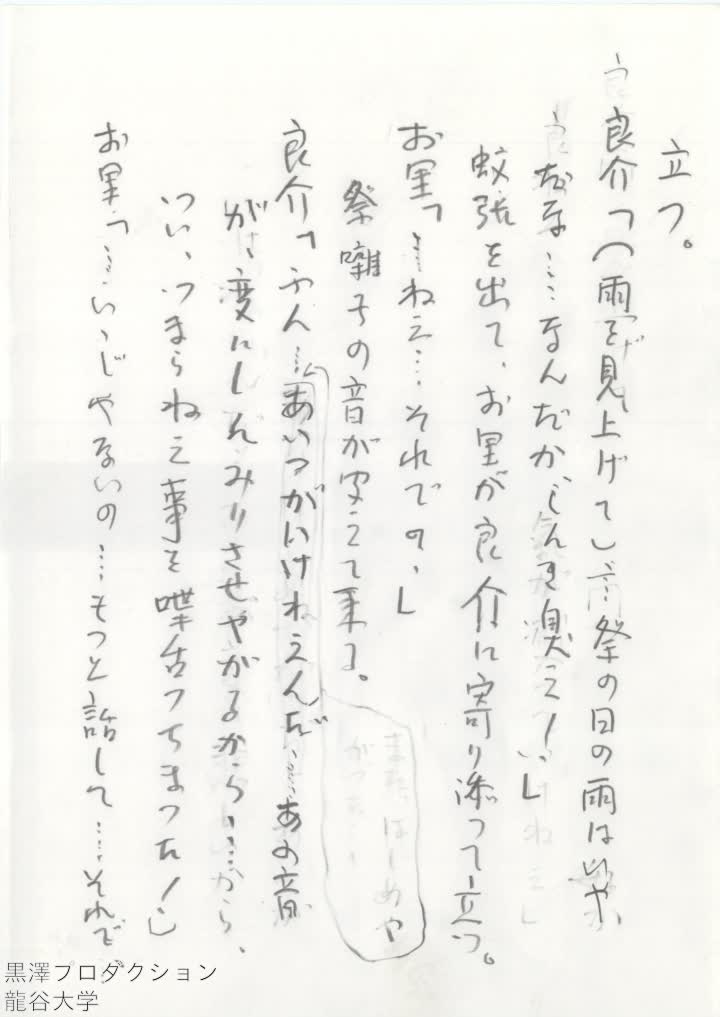 立つ。
良介「(雨を見上げて)……祭の日の雨はいや
だな……なんだかしんき臭え!」
蚊張を出て、お里が良介に寄り添って立つ。
お里「……ねえ……それでの、」
祭囃子の音が聞えて来る。
良介「ふん……あいつがいけねえんだ……あの音
が、変にしんみりさせやがるから……から、
つい、つまらねえ事を喋舌っちまった!」
お里「……いゝじゃないの……もっと話して……それで
また はじめや
がった
黒澤プロダクション
龍谷大学